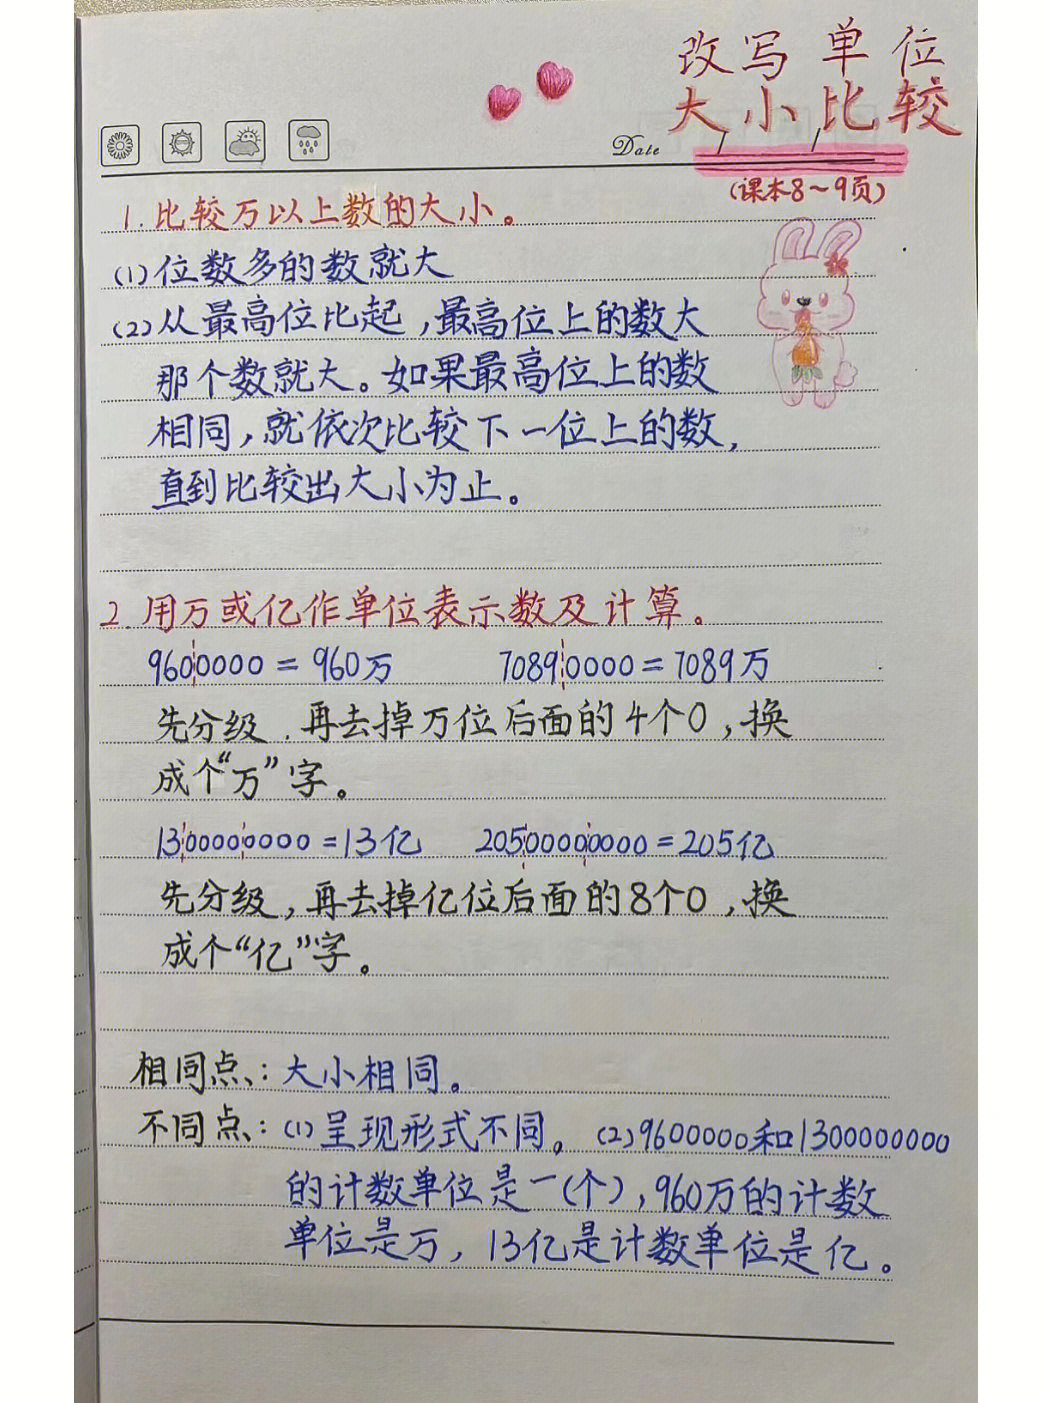 改写单位
大小比较
Date
(课本8~9页)
1.比较万以上数的大小。
(1)位数多的数就大
(2)从最高位比起,最高位上的数大
那个数就大。如果最高位上的数
相同,就依次比较下一位上的数,
直到比较出大小为止。
2.用万或亿作单位表示数及计算。
9600000=960万 70890000=7089万
先分级.再去掉万位后面的4个0,换
成个“万”字。
1300000000=13亿 20500000000=205亿
先分级,再去掉亿位后面的8个0,换
成个“亿”字。
相同点:大小相同。
不同点:(1)呈现形式不同。(2)9600000和1300000000
的计数单位是一(个),960万的计数
单位是万,13亿是计数单位是亿。